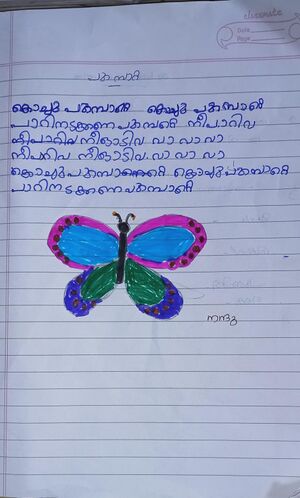 classmate
Date
Page
പൂമ്പാറ്റ
കൊച്ചു പൂമ്പാറ്റെ കൊച്ചു പൂമ്പാറ്റെ
പാറിനടക്കണ പൂമ്പാറ്റെ നീപാറിവ
നീപാറിവ നീആടിവ വാ വാ വാ
നീപാറിവ നീആടിവ വാ വാ വാ
കൊച്ചു പൂമ്പാറ്റെ കൊച്ചുപൂമ്പാറ്റെ
പാറിനടക്കണപൂമ്പാറ്റെ
നന്ദു